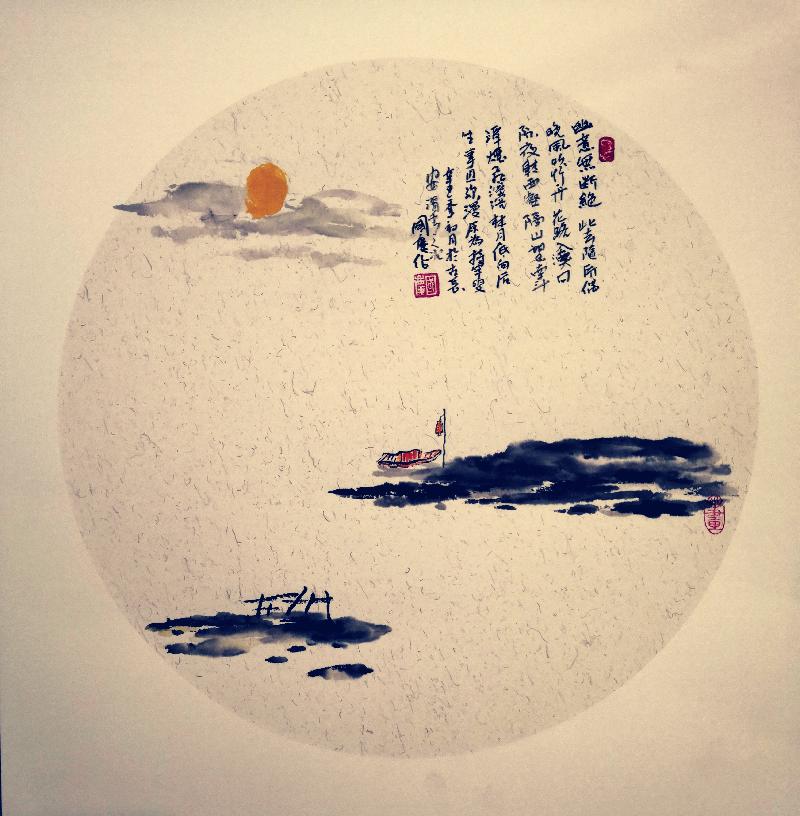 幽意無斷絕 此去隨所偶
晚風吹行舟 花路入溪口
際夜轉西壑 隔山望南斗
潭煙飛溶溶 林月低向后
生事且弥漫 愿為持竿叟
月於古長
安渭水之濱
國慶作